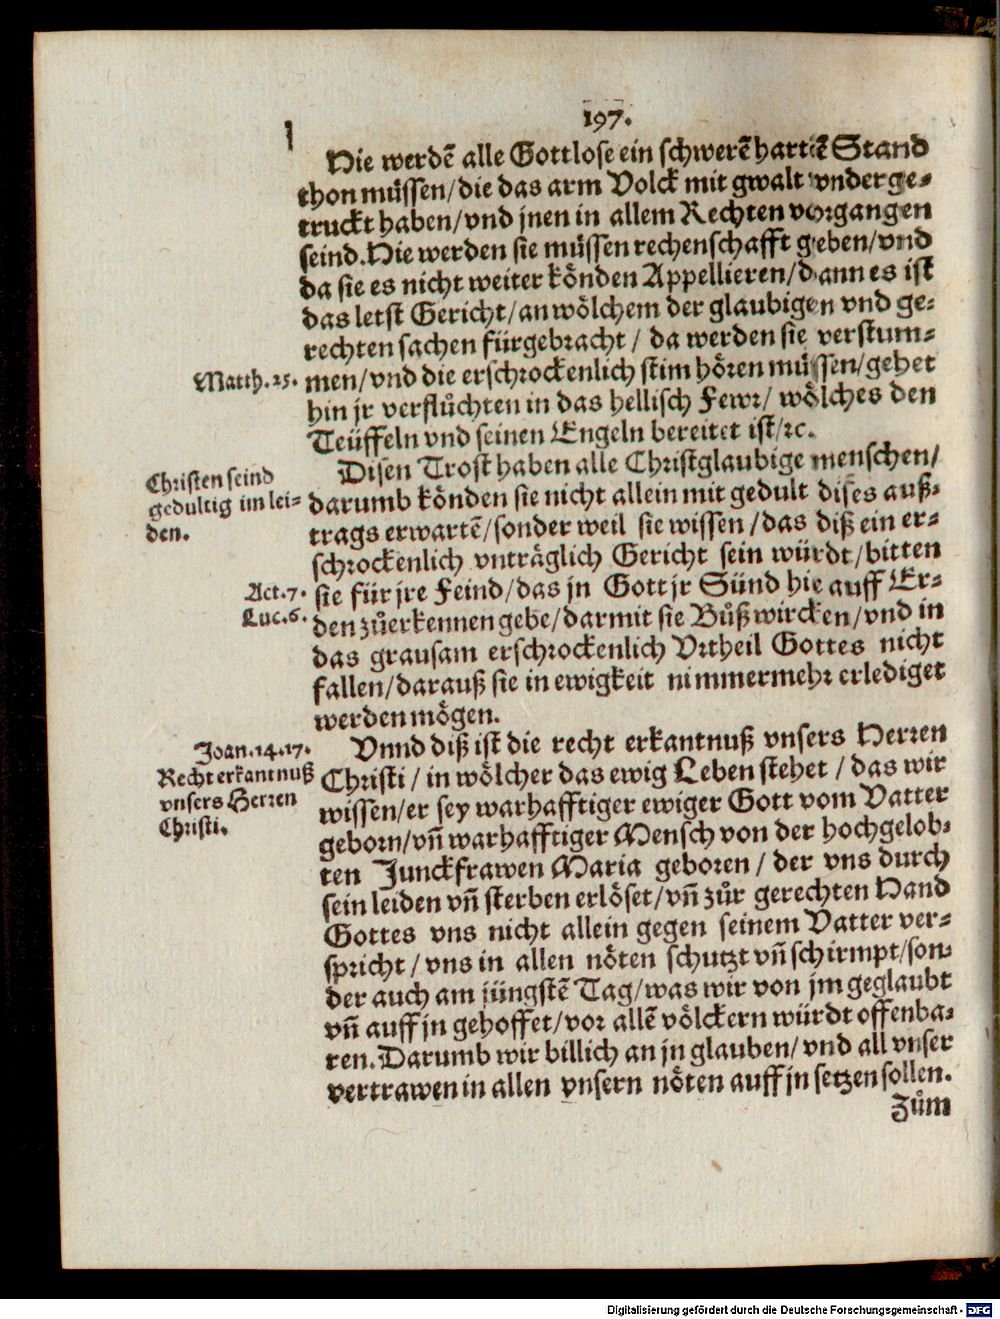 197.
Hie werdē alle Gottlose ein schwerē hartē Stand
thon müssen/die das arm Volck mit gwalt vnderge-
truckt haben/vnd jnen in allem Rechten vorgangen
seind. Hie werden sie müssen rechenschafft geben/vnd
da sie es nicht weiter könden Appellieren/dann es ist
das letst Gericht/an wölchem der glaubigen vnd ge-
rechten sachen fürgebracht / da werden sie verstum-
Matth.25.
men/vnd die erschrockenlich stim hören müssen/gehet
hin jr verflůchten in das hellisch Fewr/ wölches den
Teüffeln vnd seinen Engeln bereitet ist/ꝛc.
Disen Trost haben alle Christglaubige menschen/
Christen seind
gedultig im lei-
den.
darumb könden sie nicht allein mit gedult dises auß-
trags erwartē/sonder weil sie wissen/das diß ein er-
schrockenlich vnträglich Gericht sein würdt/bitten
Act.7.
sie für jre Feind/das jn Gott jr Sünd hie auff Er-
Luc.6.
den zůerkennen gebe/darmit sie Bůß wircken/vnd in
das grausam erschrockenlich Vrtheil Gottes nicht
fallen/darauß sie in ewigkeit nimmermehr erlediget
werden mögen.
Joan.14.17.
Recht erkantnuß
vnsers Herren
Christi.
Vnnd diß ist die recht erkantnuß vnsers Herren
Christi / in wölcher das ewig Leben stehet / das wir
wissen/er sey warhafftiger ewiger Gott vom Vatter
geborn/vn̄ warhafftiger Mensch von der hochgelob-
ten Junckfrawen Maria geboren / der vns durch
sein leiden vn̄ sterben erlöset/vn̄ zůr gerechten Hand
Gottes vns nicht allein gegen seinem Vatter ver-
spricht / vns in allen nöten schutzt vn̄ schirmpt/son-
der auch am jüngstē Tag/was wir von jm geglaubt
vn̄ auff jn gehoffet/vor allē völckern würdt offenba-
ren. Darumb wir billich an jn glauben/vnd all vnser
vertrawen in allen vnsern nöten auff jn setzen sollen.
Zům
Digitalisierung gefördert durch die Deutsche Forschungsgemeinschaft - DFG